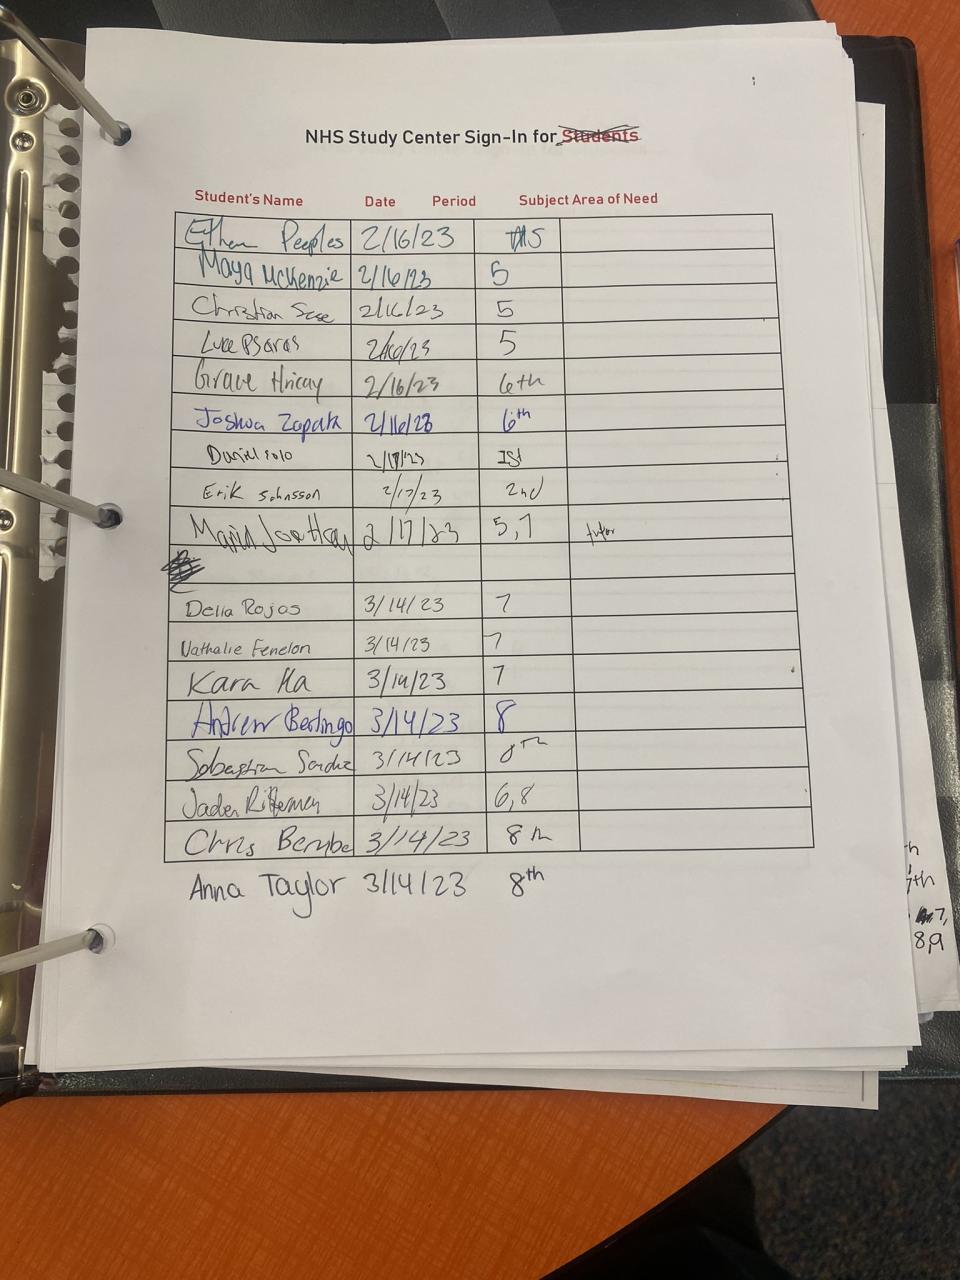 NHS Study Center Sign-In for Students
Student's Name Date Period Subject Area of Need
Ethan Peeples 2/16/23 5
Maya McKenzie 2/16/23 5
Christian 2/16/23 5
Luce Psaras 2/16/23 5
Grace Hricay 2/16/23 6th
Joshua Zapata 2/16/23 6th
Daniel Polo 2/17/23 1st
Erik Johnsson 2/17/23 2nd
Maria 2/17/23 5,7 tutor
Delia Rojas 3/14/23 7
Nathalie Fenelon 3/14/23 7
Kara Ha 3/14/23 7
Andrew Berlingo 3/14/23 8
Sebastian 3/14/23 8th
Jaden 3/14/23 6,8
Chris Berube 3/14/23 8th
Anna Taylor 3/14/23 8th
7th
7,
8,9